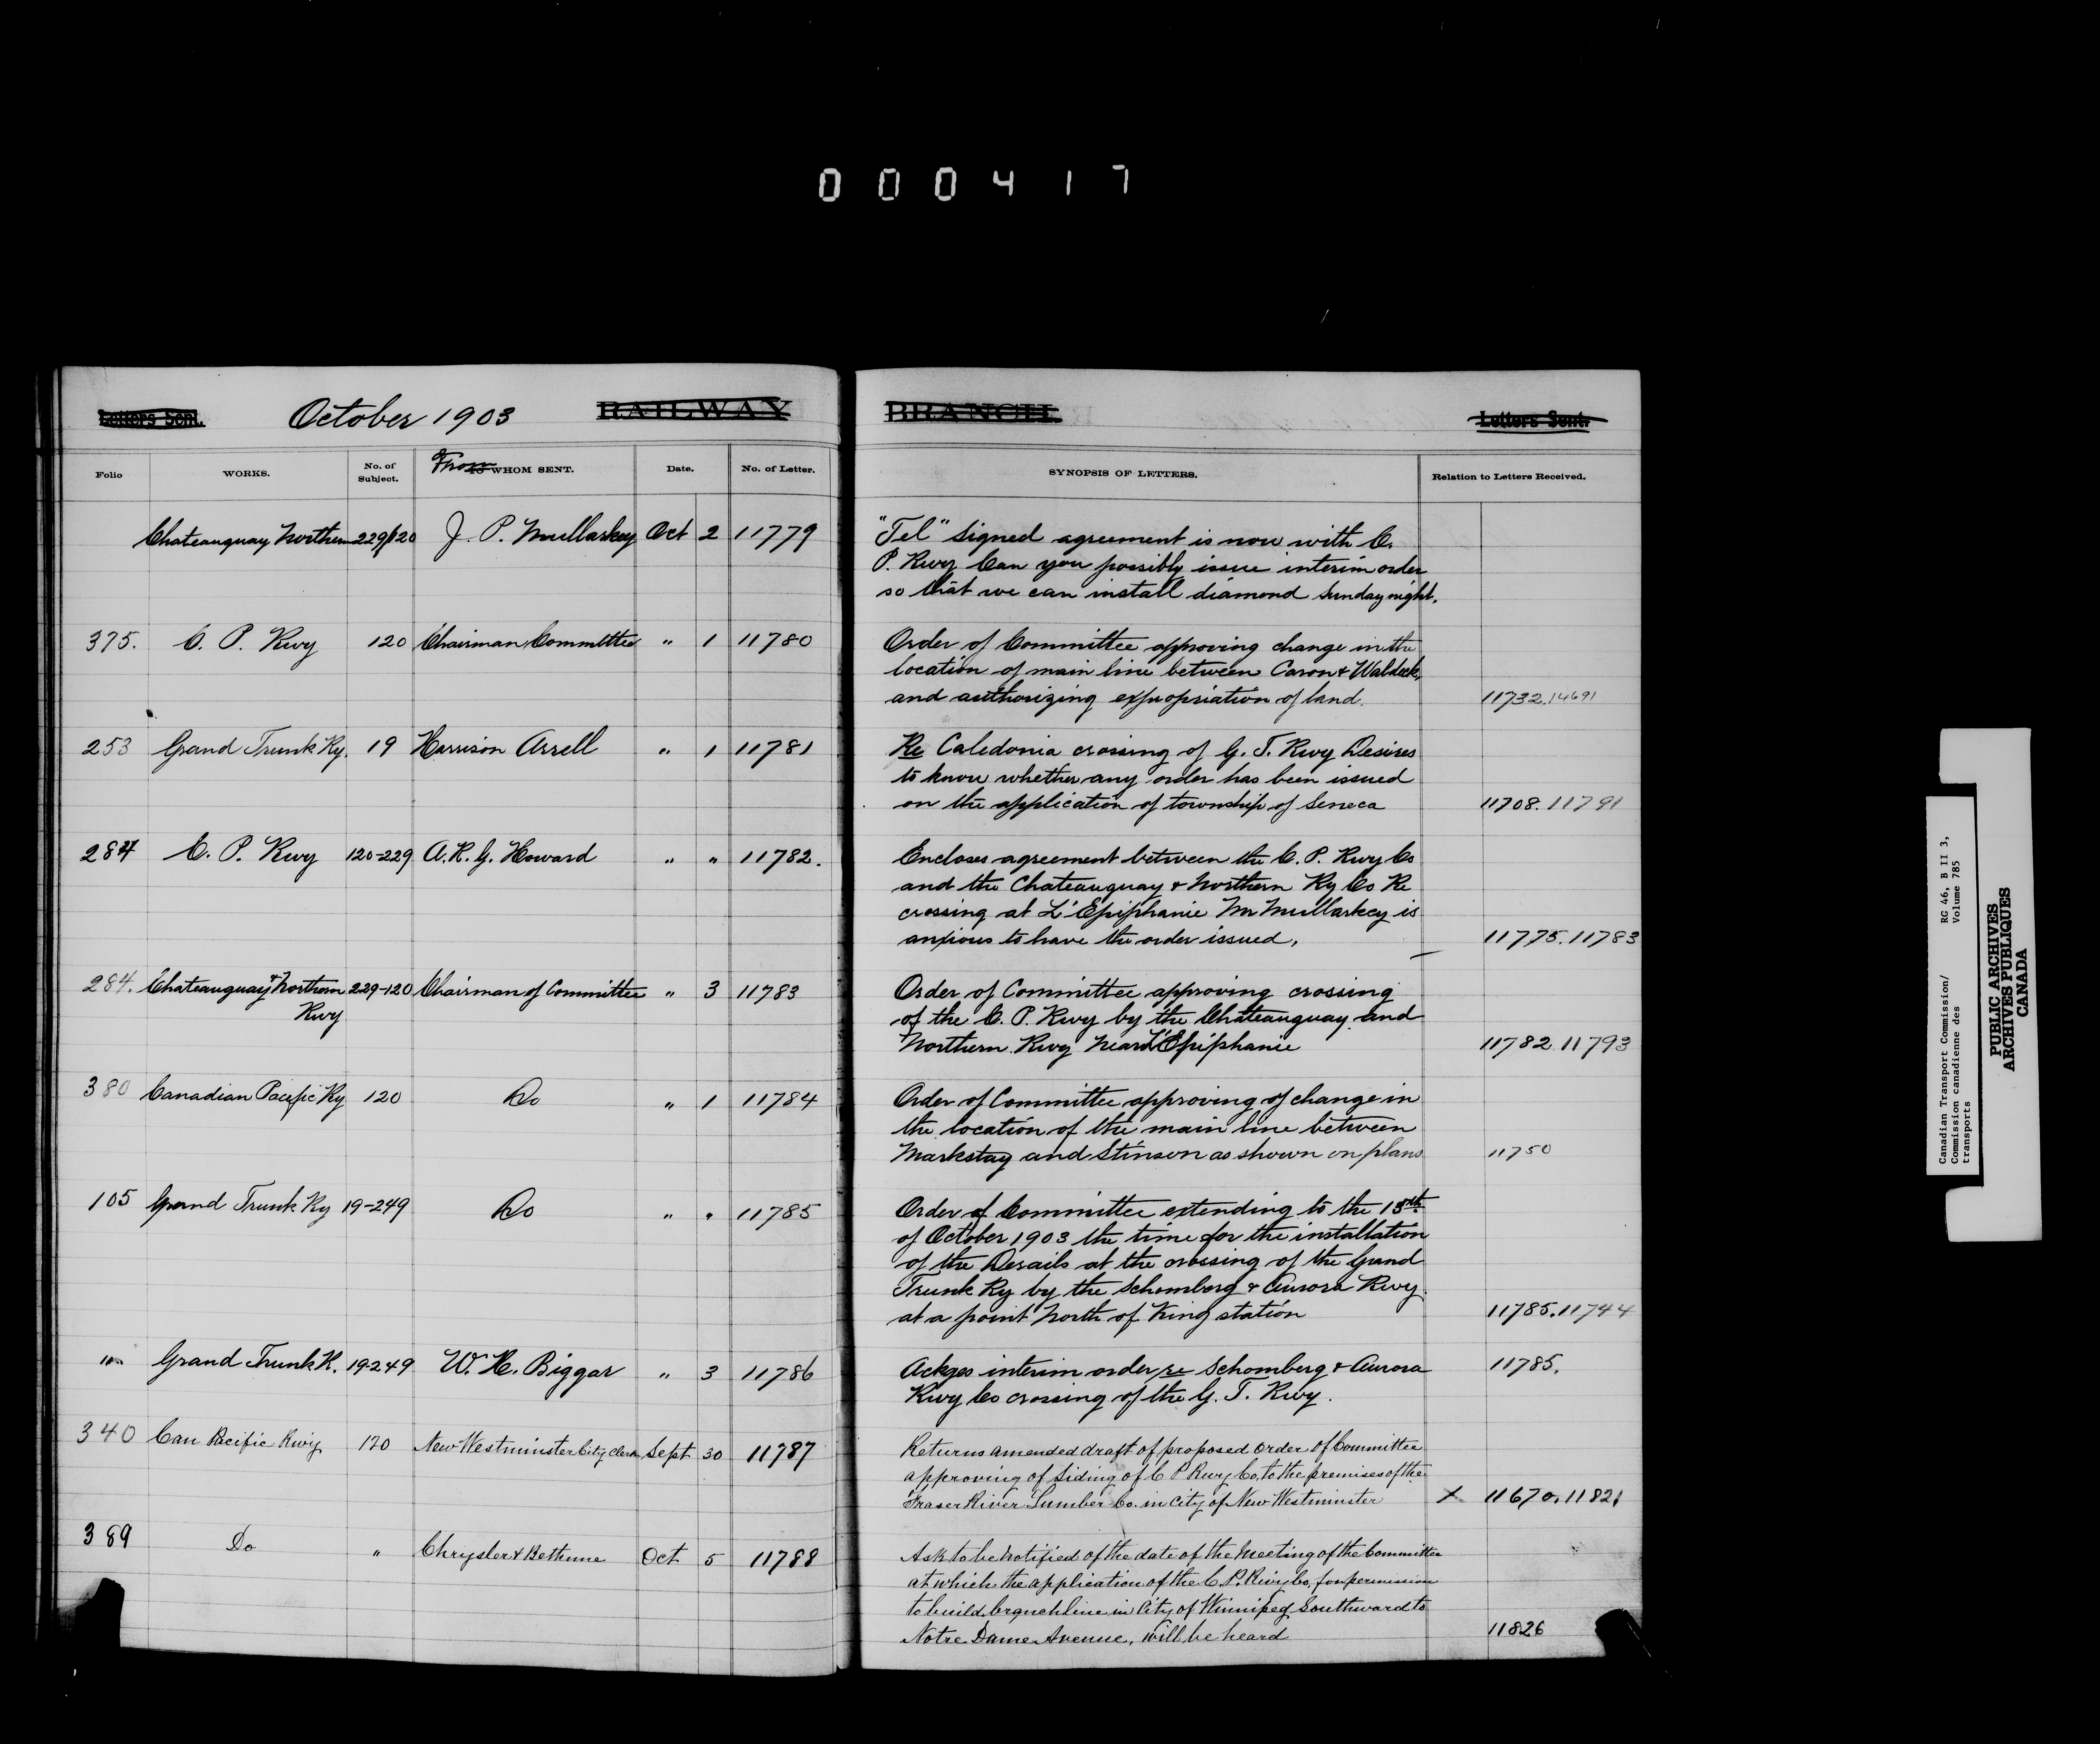 000417
Letters Sent. October 1903 RAILWAY BRANCH. Letters Sent.
Folio WORKS. No. of Subject. From TO WHOM SENT. Date. No. of Letter. SYNOPSIS OF LETTERS. Relation to Letters Received.
Chateauguay Northern 229/120 J. P. Mullarkey Oct 2 11779 "Tel" Signed agreement is now with C.
P. Rwy Can you possibly issue interim order
so that we can install diamond Sunday night.
375. C. P. Rwy 120 Chairman Committee " 1 11780 Order of Committee approving change in the
location of main line between Caron & Waldeck,
and authorizing expropriation of land. 11732.14691
253 Grand Trunk Ry. 19 Harrison Arrell " 1 11781 Re Caledonia crossing of G. T. Rwy Desires
to know whether any order has been issued
on the application of township of Seneca 11708.11791
284 C. P. Rwy 120-229 A. R. G. Howard " " 11782. Encloses agreement between the C. P. Rwy Co
and the Chateauguay & Northern Ry Co Re
crossing at L'Epiphanie Mr Mullarkey is
anxious to have the order issued, 11775.11783
284. Chateauguay & Northern 229-120 Chairman of Committee " 3 11783 Order of Committee approving crossing
Rwy of the C. P. Rwy by the Chateauguay and
Northern Rwy near L'Epiphanie 11782 11793
380 Canadian Pacific Ry 120 Do " 1 11784 Order of Committee approving of change in
the location of the main line between
Markstay and Stinson as shown on plans 11750
105 Grand Trunk Ry 19-249 Do " " 11785 Order of Committee extending to the 15th
of October 1903 the time for the installation
of the Derails at the crossing of the Grand
Trunk Ry by the Schomberg & Aurora Rwy.
at a point North of King station 11785.11744
" Grand Trunk R. 19-249 W. H. Biggar " 3 11786 Ackges interim order re Schomberg & Aurora 11785.
Rwy Co crossing of the G. T. Rwy.
340 Can Pacific Rwy 120 New Westminster City Clerk Sept 30 11787 Returns amended draft of proposed Order of Committee
approving of Siding of C P Rwy Co, to the premises of the
Fraser River Lumber Co. in City of New Westminster X 11670.11821
389 Do " Chrysler & Bethune Oct 5 11788 Ask to be notified of the date of the Meeting of the Committee
at which the application of the C. P. Rwy Co, for permission
to build branch line in City of Winnipeg Southward to
Notre Dame Avenue, will be heard 11826
Canadian Transport Commission/ RG 46, B II 3,
Commission canadienne des Volume 785
transports
PUBLIC ARCHIVES
ARCHIVES PUBLIQUES
CANADA